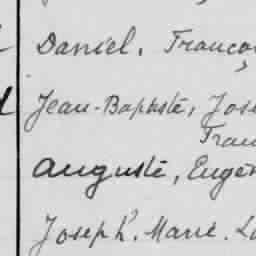 Daniel. Franço
Jean-Baptiste, Jose
Fran
Auguste, Eugèn
Joseph, Marie. Lo